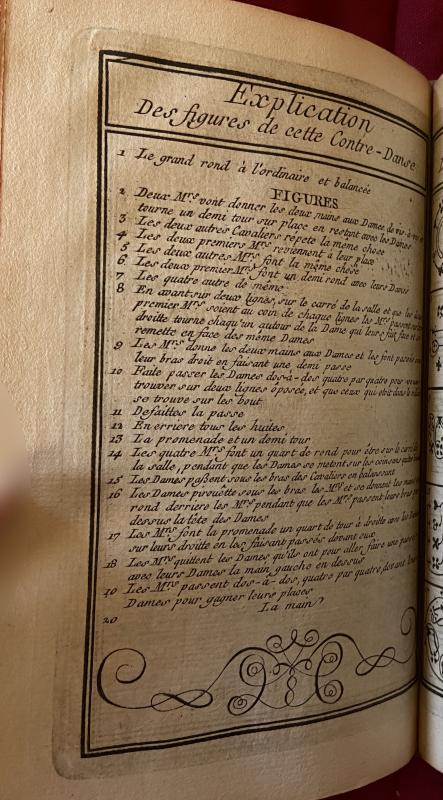 Explication
Des figures de cette Contre-Danse
1 Le grand rond à l'ordinaire et balancée
FIGURES
2 Deux Mrs vont donner les deux mains aux Dames de vis-à-vis
tourne un demi tour sur place en restant avec les Dames
3 Les deux autres Cavaliers répete la même chose
4 Les deux premiers Mrs reviennent à leur place
5 Les deux autres Mrs font la même chose
6 Les deux premier Mrs font un demi rond avec leurs Dames
7 Les quatre autre de même
8 En avant sur deux lignes, sur le carré de la salle et que les
premier Mrs soient au coin de chaque lignes les Mrs passent sur
droitte tourne chaqu'un autour de la Dame qui leur fait face et
remette en face des même Dames
9 Les Mrs donne les deux mains aux Dames et les font passés
leur bras droit en faisant une demi passe
10 Faite passer les Dames dos-à-dos quatre par quatre pour
trouver sur deux lignes oposée, et que ceux qui etoit dans le
se trouve sur les bout
11 Defaittes la passe
12 En erriere tous les huites
13 La promenade et un demi tour
14 Les quatre Mrs font un quart de rond pour être sur le carré de
la salle, pendant que les Dames se metent sur les coins
15 Les Dames passent sous les bras des Cavaliers en balansent
16 Les Dames pirouette sous les bras les Mrs et se donnent les mains
rond derriere les Mrs pendant que les Mrs passent leurs bras
dessus la tôte des Dames
17 Les Mrs font la promenade un quart de tour à droitte avec les Dames
sur leurs droitte en les faisant passés devant eux
18 Les Mrs quittent les Dames qu'ils ont pour aller faire une
avec leurs Dames la main gauche en dessus
19 Les Mrs passent dos-à-dos, quatre par quatre, devant leurs
Dames pour gagner leurs places
20 La main